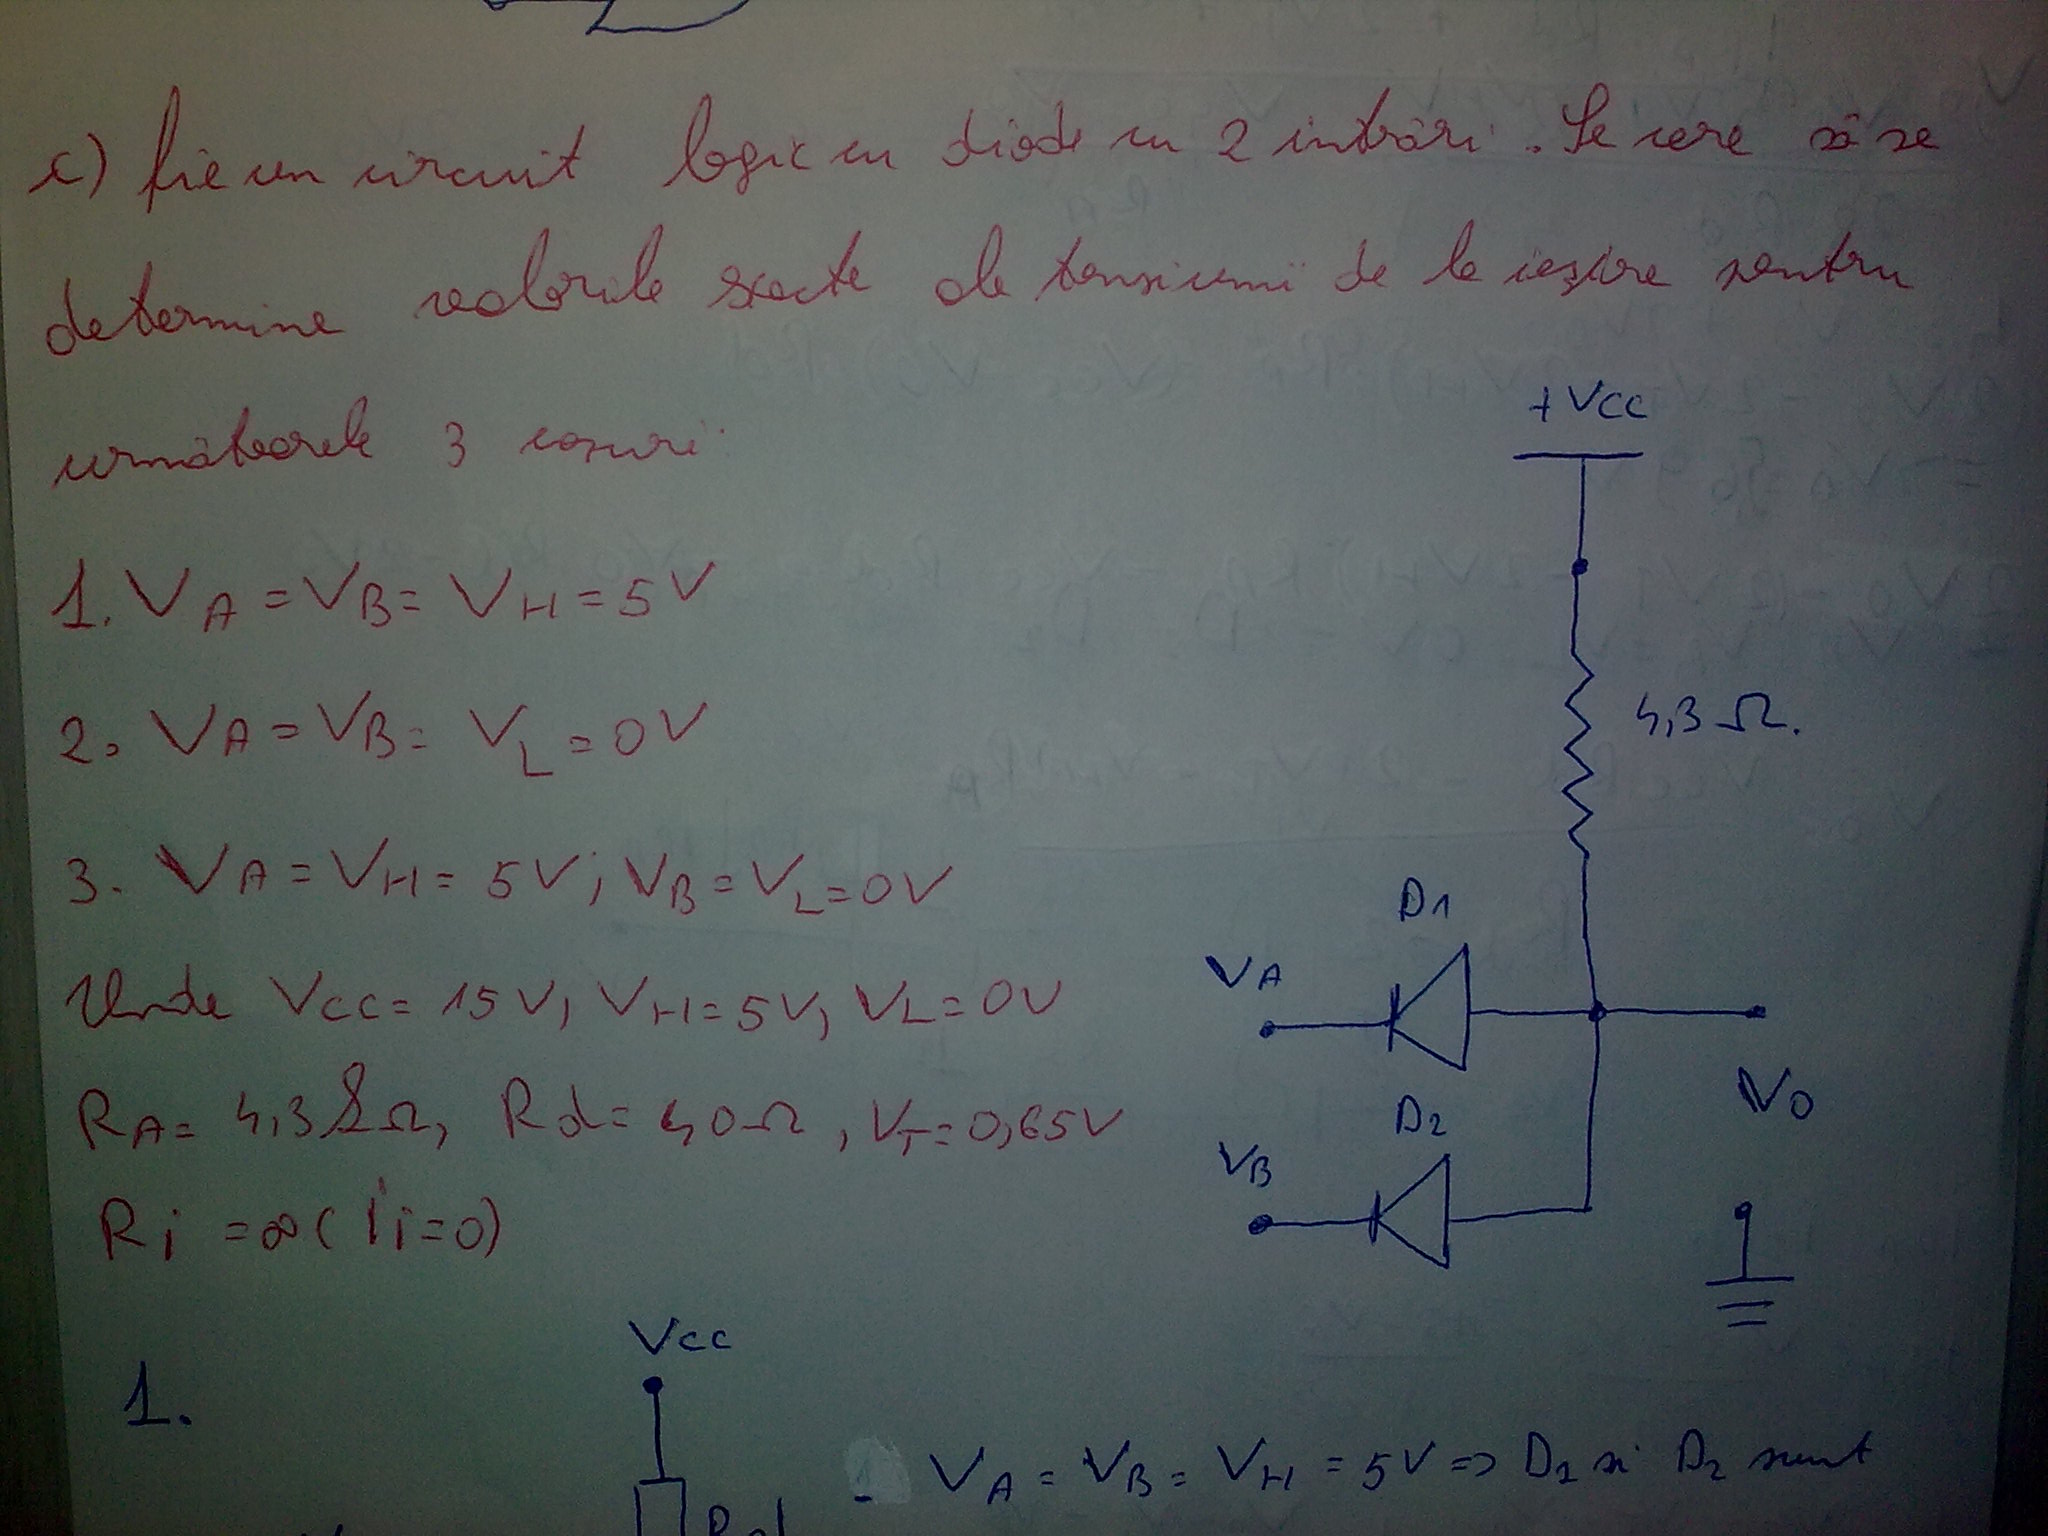 c) fie un circuit logic cu diode cu 2 intrări. Se cere să se
determine valorile exacte ale tensiunii de la ieșire pentru
următoarele 3 cazuri:
+VCC
1. VA = VB = VH = 5V
4,3 Ω.
2. VA = VB = VL = 0V
3. VA = VH = 5V; VB = VL = 0V
D1
VA
Unde VCC = 15V, VH = 5V, VL = 0V
V0
RA = 4,3kΩ, Rd = 40Ω, VT = 0,65V
D2
VB
Ri = ∞ (Ii = 0)
VCC
1.
VA = VB = VH = 5V => D1 si D2 sunt